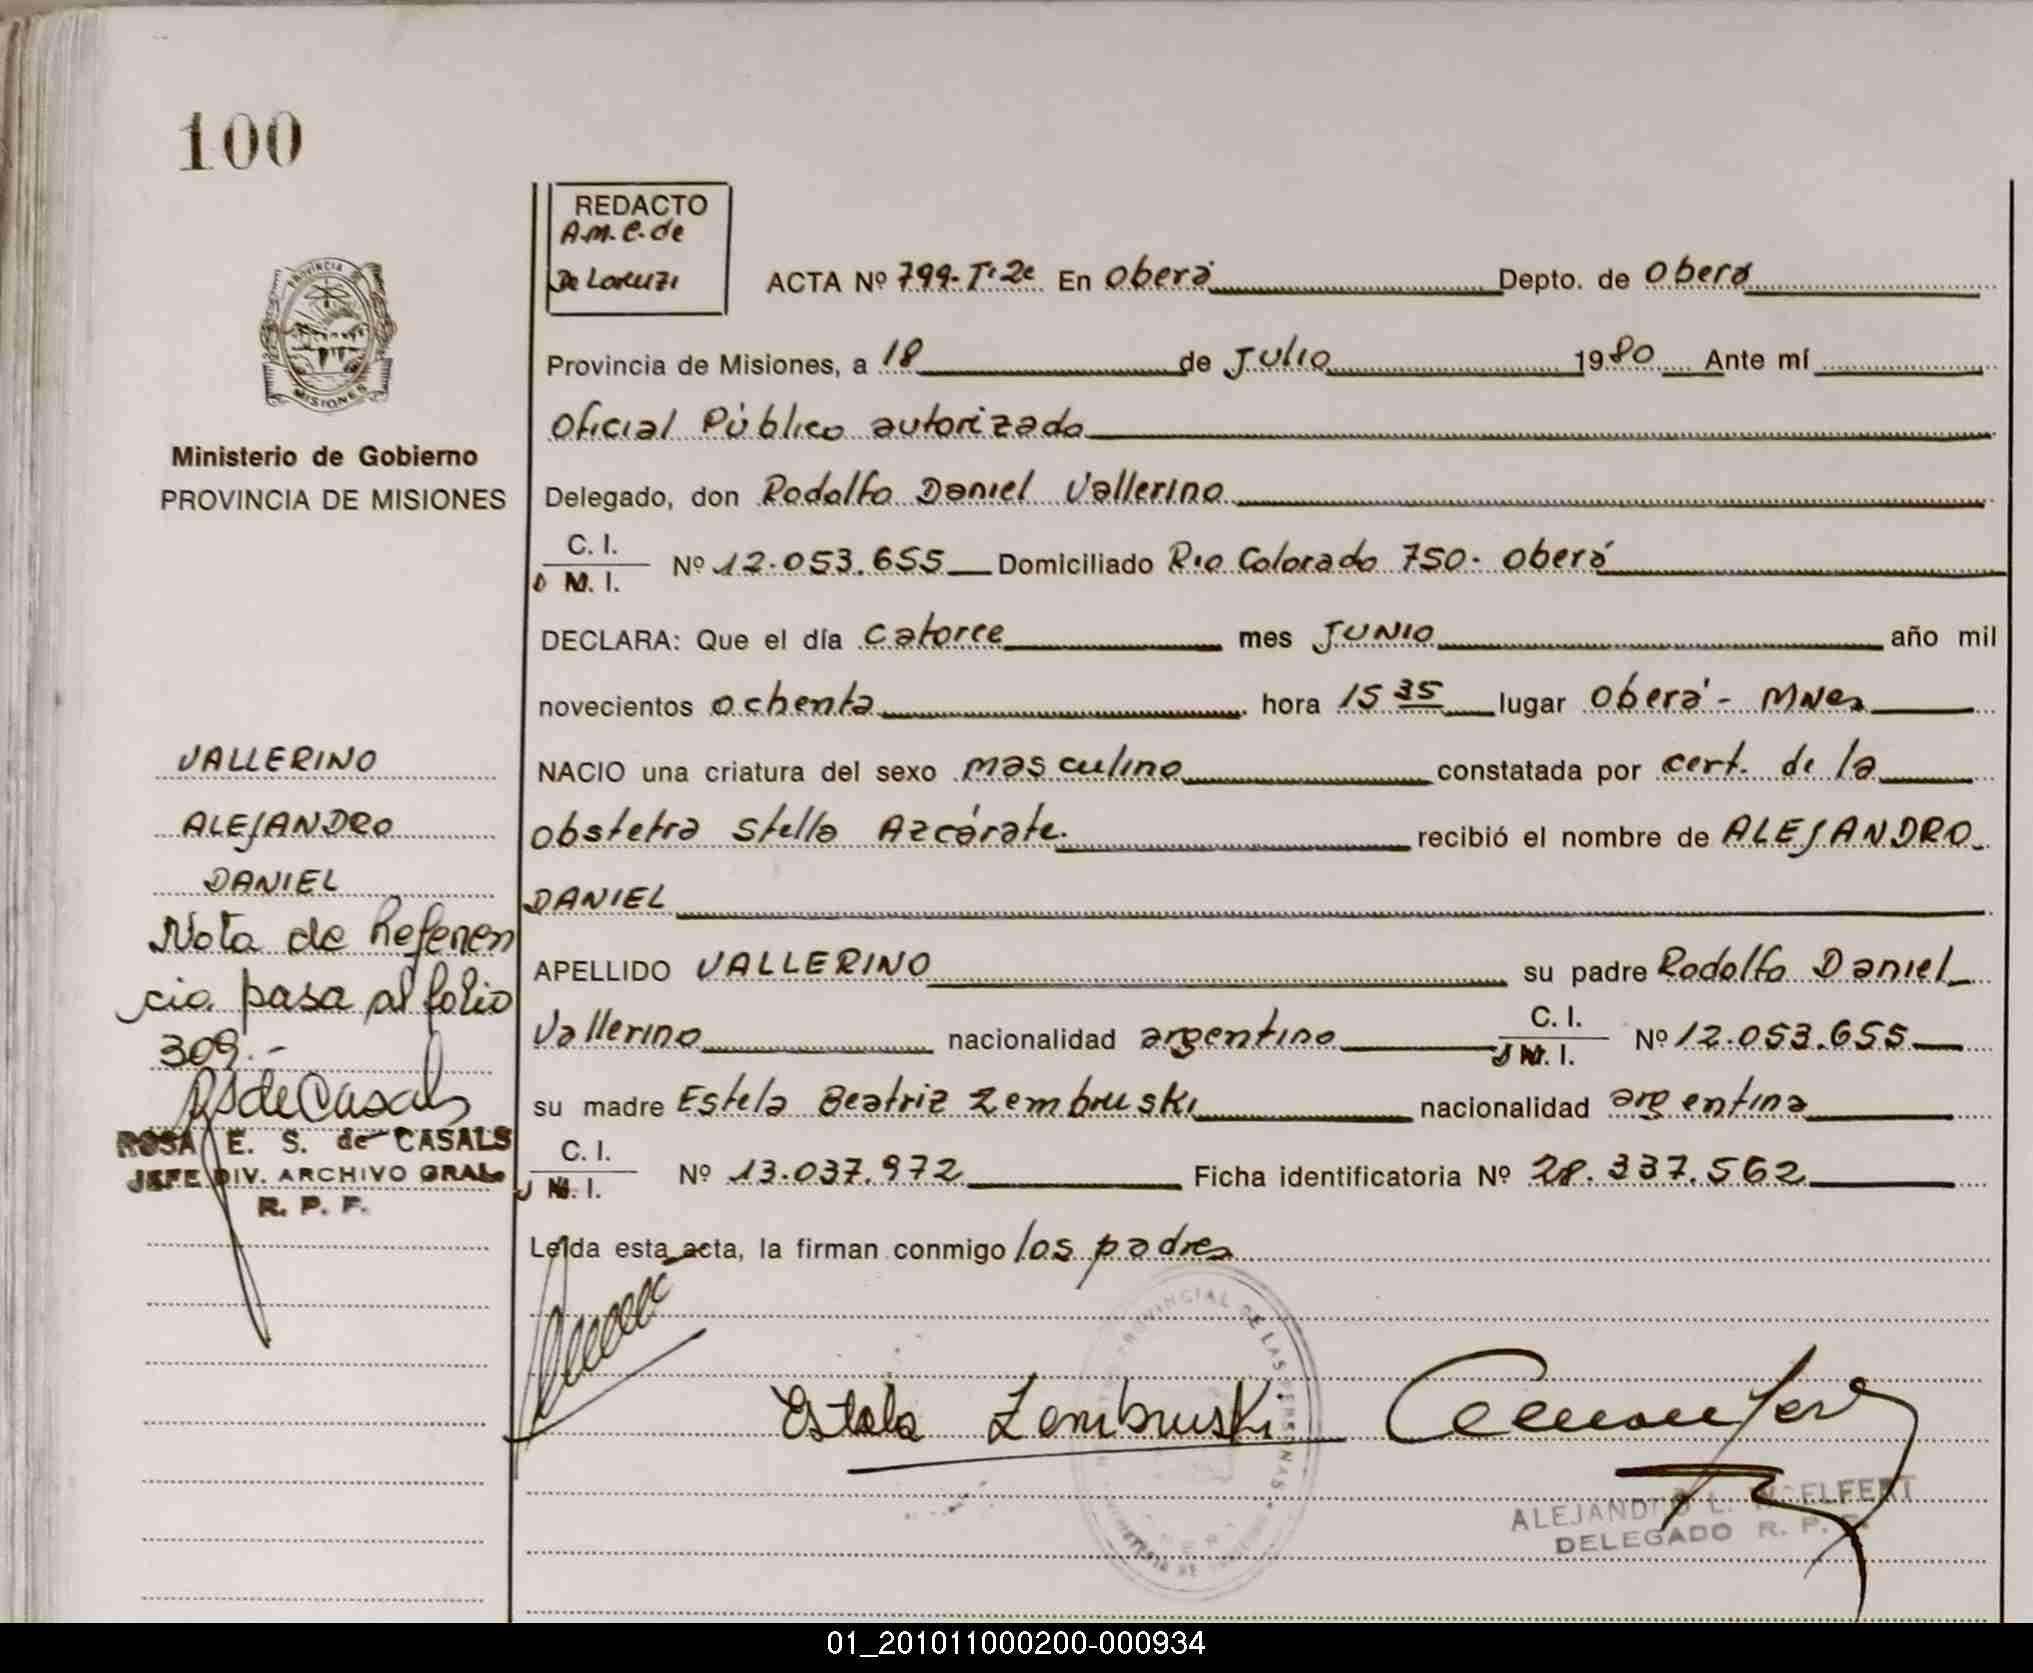 100
REDACTO
A.M.C. de
De Lorenzi
ACTA Nº 799-Tº2º En Oberá Depto. de Oberá
PROVINCIA DE
MISIONES
Provincia de Misiones, a 18 de Julio 1980 Ante mí
Oficial Público autorizado
Ministerio de Gobierno
PROVINCIA DE MISIONES
Delegado, don Rodolfo Daniel Vallerino
C. I.
D M. I.
Nº 12.053.655 Domiciliado Rio Colorado 750. Oberá
DECLARA: Que el día catorce mes JUNIO año mil
novecientos ochenta hora 15 35 lugar Oberá - Mnes
VALLERINO
ALEJANDRO
DANIEL
NACIO una criatura del sexo masculino constatada por cert. de la
obstetra Stella Azcárate. recibió el nombre de ALEJANDRO
DANIEL
Nota de Referen
cia pasa al folio
309.-
APELLIDO VALLERINO su padre Rodolfo Daniel
Vallerino nacionalidad argentino C. I. M. I. Nº 12.053.655
RSdeCasals
ROSA E. S. de CASALS
JEFE DIV. ARCHIVO GRAL
R. P. F.
su madre Estela Beatriz Zembruski nacionalidad argentina
C. I.
M. I.
Nº 13.037.972 Ficha identificatoria Nº 28.337.562
Leída esta acta, la firman conmigo los padres
PROVINCIAL DE LAS PERSONAS
Estela Zembruski
DELEGADO R. P.
01_201011000200-000934